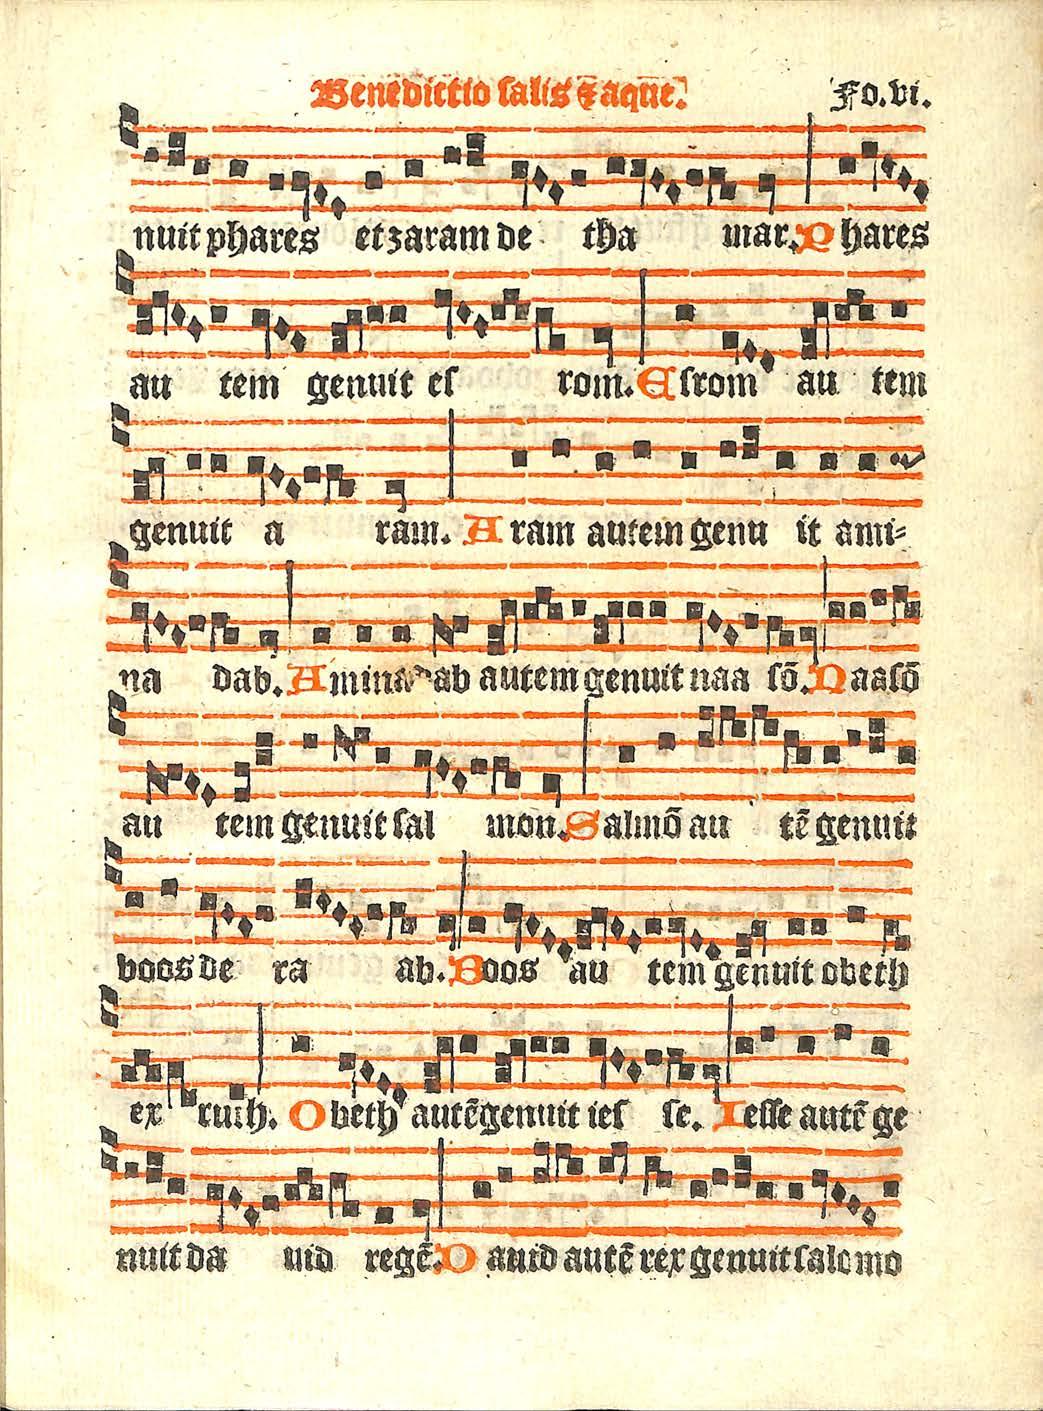 Benedictio salis ⁊ aque. Fo.vi.
nuit phares et zaram de tha mar. Phares
au tem genuit es rom. Esrom au tem
genuit a ram. Aram autem genu it ami-
na dab. Aminadab autem genuit naa sō. Naasō
au tem genuit sal mon. Salmō au tē genuit
boos de ra ab. Boos au tem genuit obeth
ex ruth. Obeth autē genuit ies se. Iesse autē ge
nuit da uid regē. Dauid autē rex genuit salomo